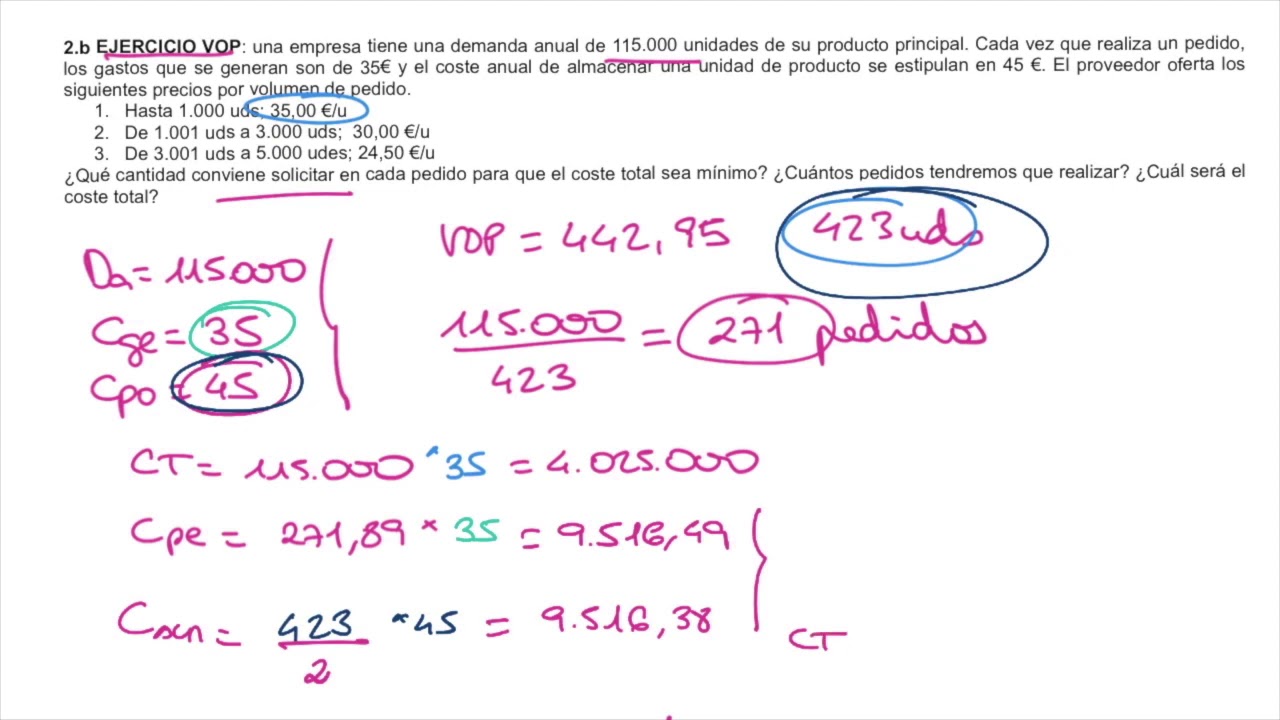 2.b EJERCICIO VOP: una empresa tiene una demanda anual de 115.000 unidades de su producto principal. Cada vez que realiza un pedido,
los gastos que se generan son de 35€ y el coste anual de almacenar una unidad de producto se estipulan en 45 €. El proveedor oferta los
siguientes precios por volumen de pedido.
1. Hasta 1.000 uds; 35,00 €/u
2. De 1.001 uds a 3.000 uds; 30,00 €/u
3. De 3.001 uds a 5.000 udes; 24,50 €/u
¿Qué cantidad conviene solicitar en cada pedido para que el coste total sea mínimo? ¿Cuántos pedidos tendremos que realizar? ¿Cuál será el
coste total?
VOP = 442,95 423 uds
Da = 115.000
Cge = 35
Cpo = 45
115.000 = 271 pedidos
423
CT = 115.000 * 35 = 4.025.000
Cpe = 271,89 * 35 = 9.516,49
Cmn = 423 * 45 = 9.516,38
2
CT